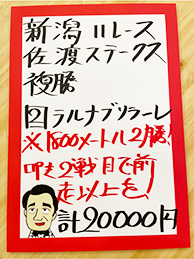 新潟11レース
佐渡ステークス
複勝
②ラルナブリラーレ
※1800メートル2勝!
叩き2戦目で前
走以上を!
計20000円